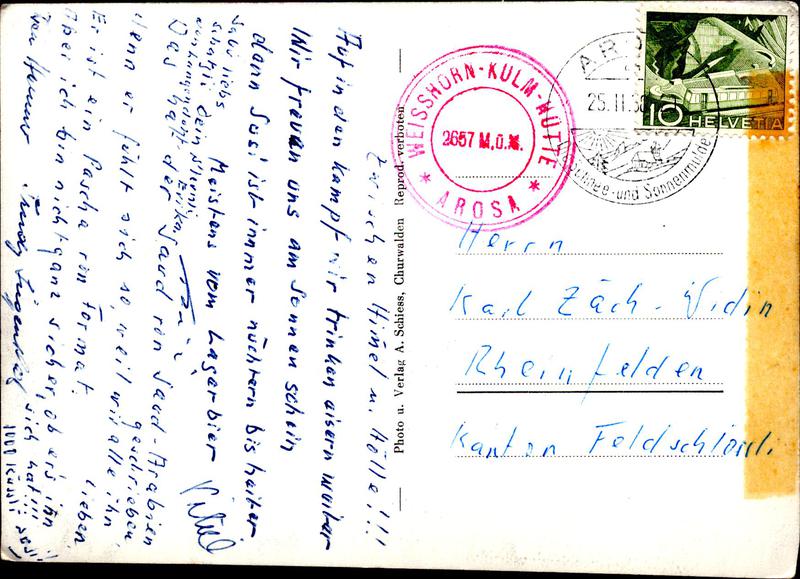 Zwischen Himel u. Hölle!!!
Auf in den Kampf wir trinken eisern weiter
Wir freuen uns am Sonnenschein
dann Susi ist immer nüchtern bis heiter
Meistens vom Lagerbier
Das hat der Saud von Saud-Arabien
geschrieben,
denn er fühlt sich so, weil wir alle ihn
lieben
Er ist ein Pascha von Format.
Aber ich bin nicht ganz sicher, ob er's ihn
sich hat!!!
1000 Küssli
Photo u. Verlag A. Schiess, Churwalden Reprod. verboten
WEISSHORN-KULM-HÜTTE
2657 M.ü.M.
* AROSA *
25.II.
Schnee- und Sonnenmulde
10 HELVETIA
Herrn
Karl Zäch-Widin
Rheinfelden
Kanton Feldschlössli